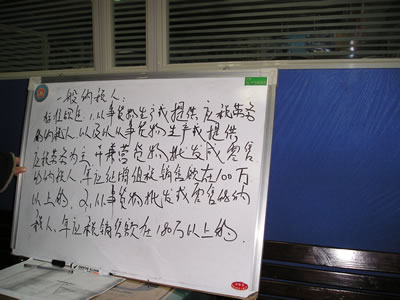 一般纳税人:
标准的是:1.从事货物生产或提供应税劳务
的纳税人,以及以从事货物生产或提供
应税劳务为主,并兼营货物批发或零售
的纳税人,年应征增值税销售额在100万
以上的. 2.从事货物批发或零售的纳
税人,年应税销售额在180万以上的.